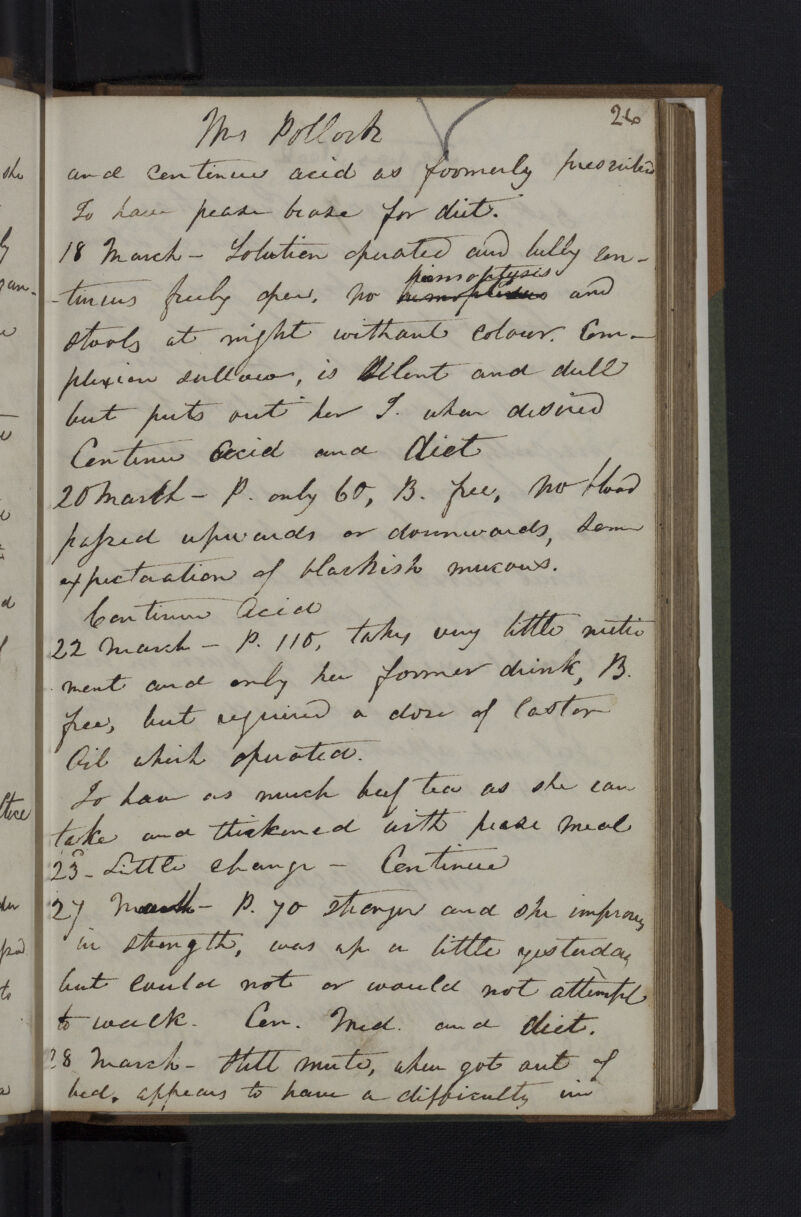 26
Mrs Pollock
and continue acid as foomerly prescribed
To have pease brose for diet.
18 March - Solution operated and belly con-
-tinues freely open, no hemoptysis and
stools at night without colour. Com-
plexion sallow, is silent and dull
but puts out her T. when desired
Continue acid and diet
20 March - P. only 60, B. free, no blood
passed upwards or downwards, some
expectoration of blackish mucous.
Continue Acid
22 March - P. 110, takes very little nutri
ment and only her former drink, B.
free, but required a dose of Castor
Oil which operated.
To have as much beef tea as she can
take and thickened with pease meal
23 - Little change - Continue
27 March - P. 70 stronger and she improves
in strength, was up a little yesterday
but could not or would not attempt
to walk. Con. Med. and diet.
28 March - Still mute, when got out of
bed, appears to have a difficulty in